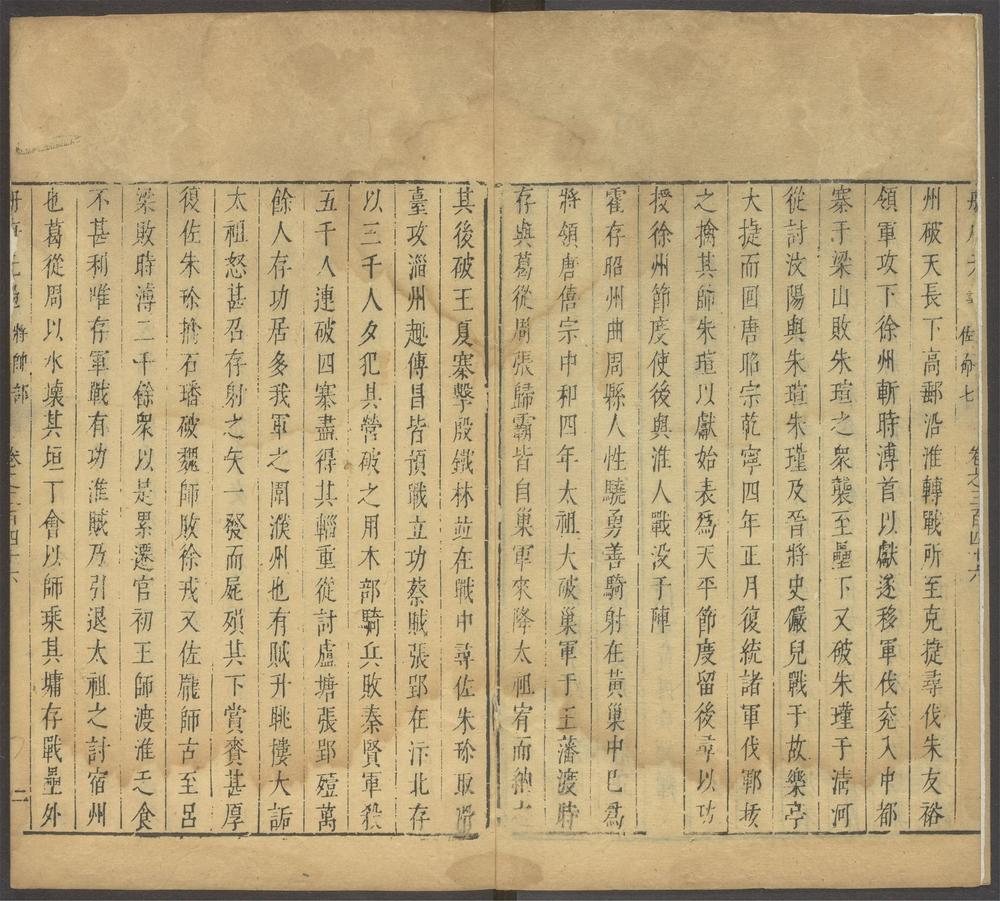 册府元龜 佐命七 卷之三百四十六
州破天長下高郵沿淮轉戰所至克捷尋伐朱友裕
領軍攻下徐州斬時溥首以獻遂移軍伐兖入中都
寨于梁山敗朱瑄之衆襲至壘下又破朱瑾于清河
從討汶陽與朱瑄朱瑾及晉將史儼兒戰于故樂亭
大捷而回唐昭宗乾寧四年正月復統諸軍伐鄆拔
之擒其帥朱瑄以獻始表爲天平節度留後尋以功
授徐州節度使後與淮人戰没于陣
霍存昭州曲周縣人性驍勇善騎射在黃巢中已爲
將領唐僖宗中和四年太祖大破巢軍于王藩渡時
存與葛從周張歸霸皆自巢軍來降太祖宥而納之
其後破王夏寨擊殷鐵林並在戰中尋佐朱珍取滑
臺攻淄州趣傳昌皆預戰立功蔡賊張郢在汴北存
以三千人夕犯其營破之用木部騎兵敗秦賢軍殺
五千人連破四寨盡得其輜重從討盧塘張郢殪萬
餘人存功居多我軍之圍濮州也有賊升眺樓大詬
太祖怒甚召存射之矢一發而屍殞其下賞賚甚厚
復佐朱珍擒石璠破魏師敗徐戎又佐龐師古至呂
梁敗時溥二千餘衆以是累遷官初王師渡淮乏食
不甚利唯存軍戰有功淮賊乃引退太祖之討宿州
也葛從周以水壞其垣丁會以師乘其墉存戰壘外
册府元龜 將帥部 卷之三百四十六 二